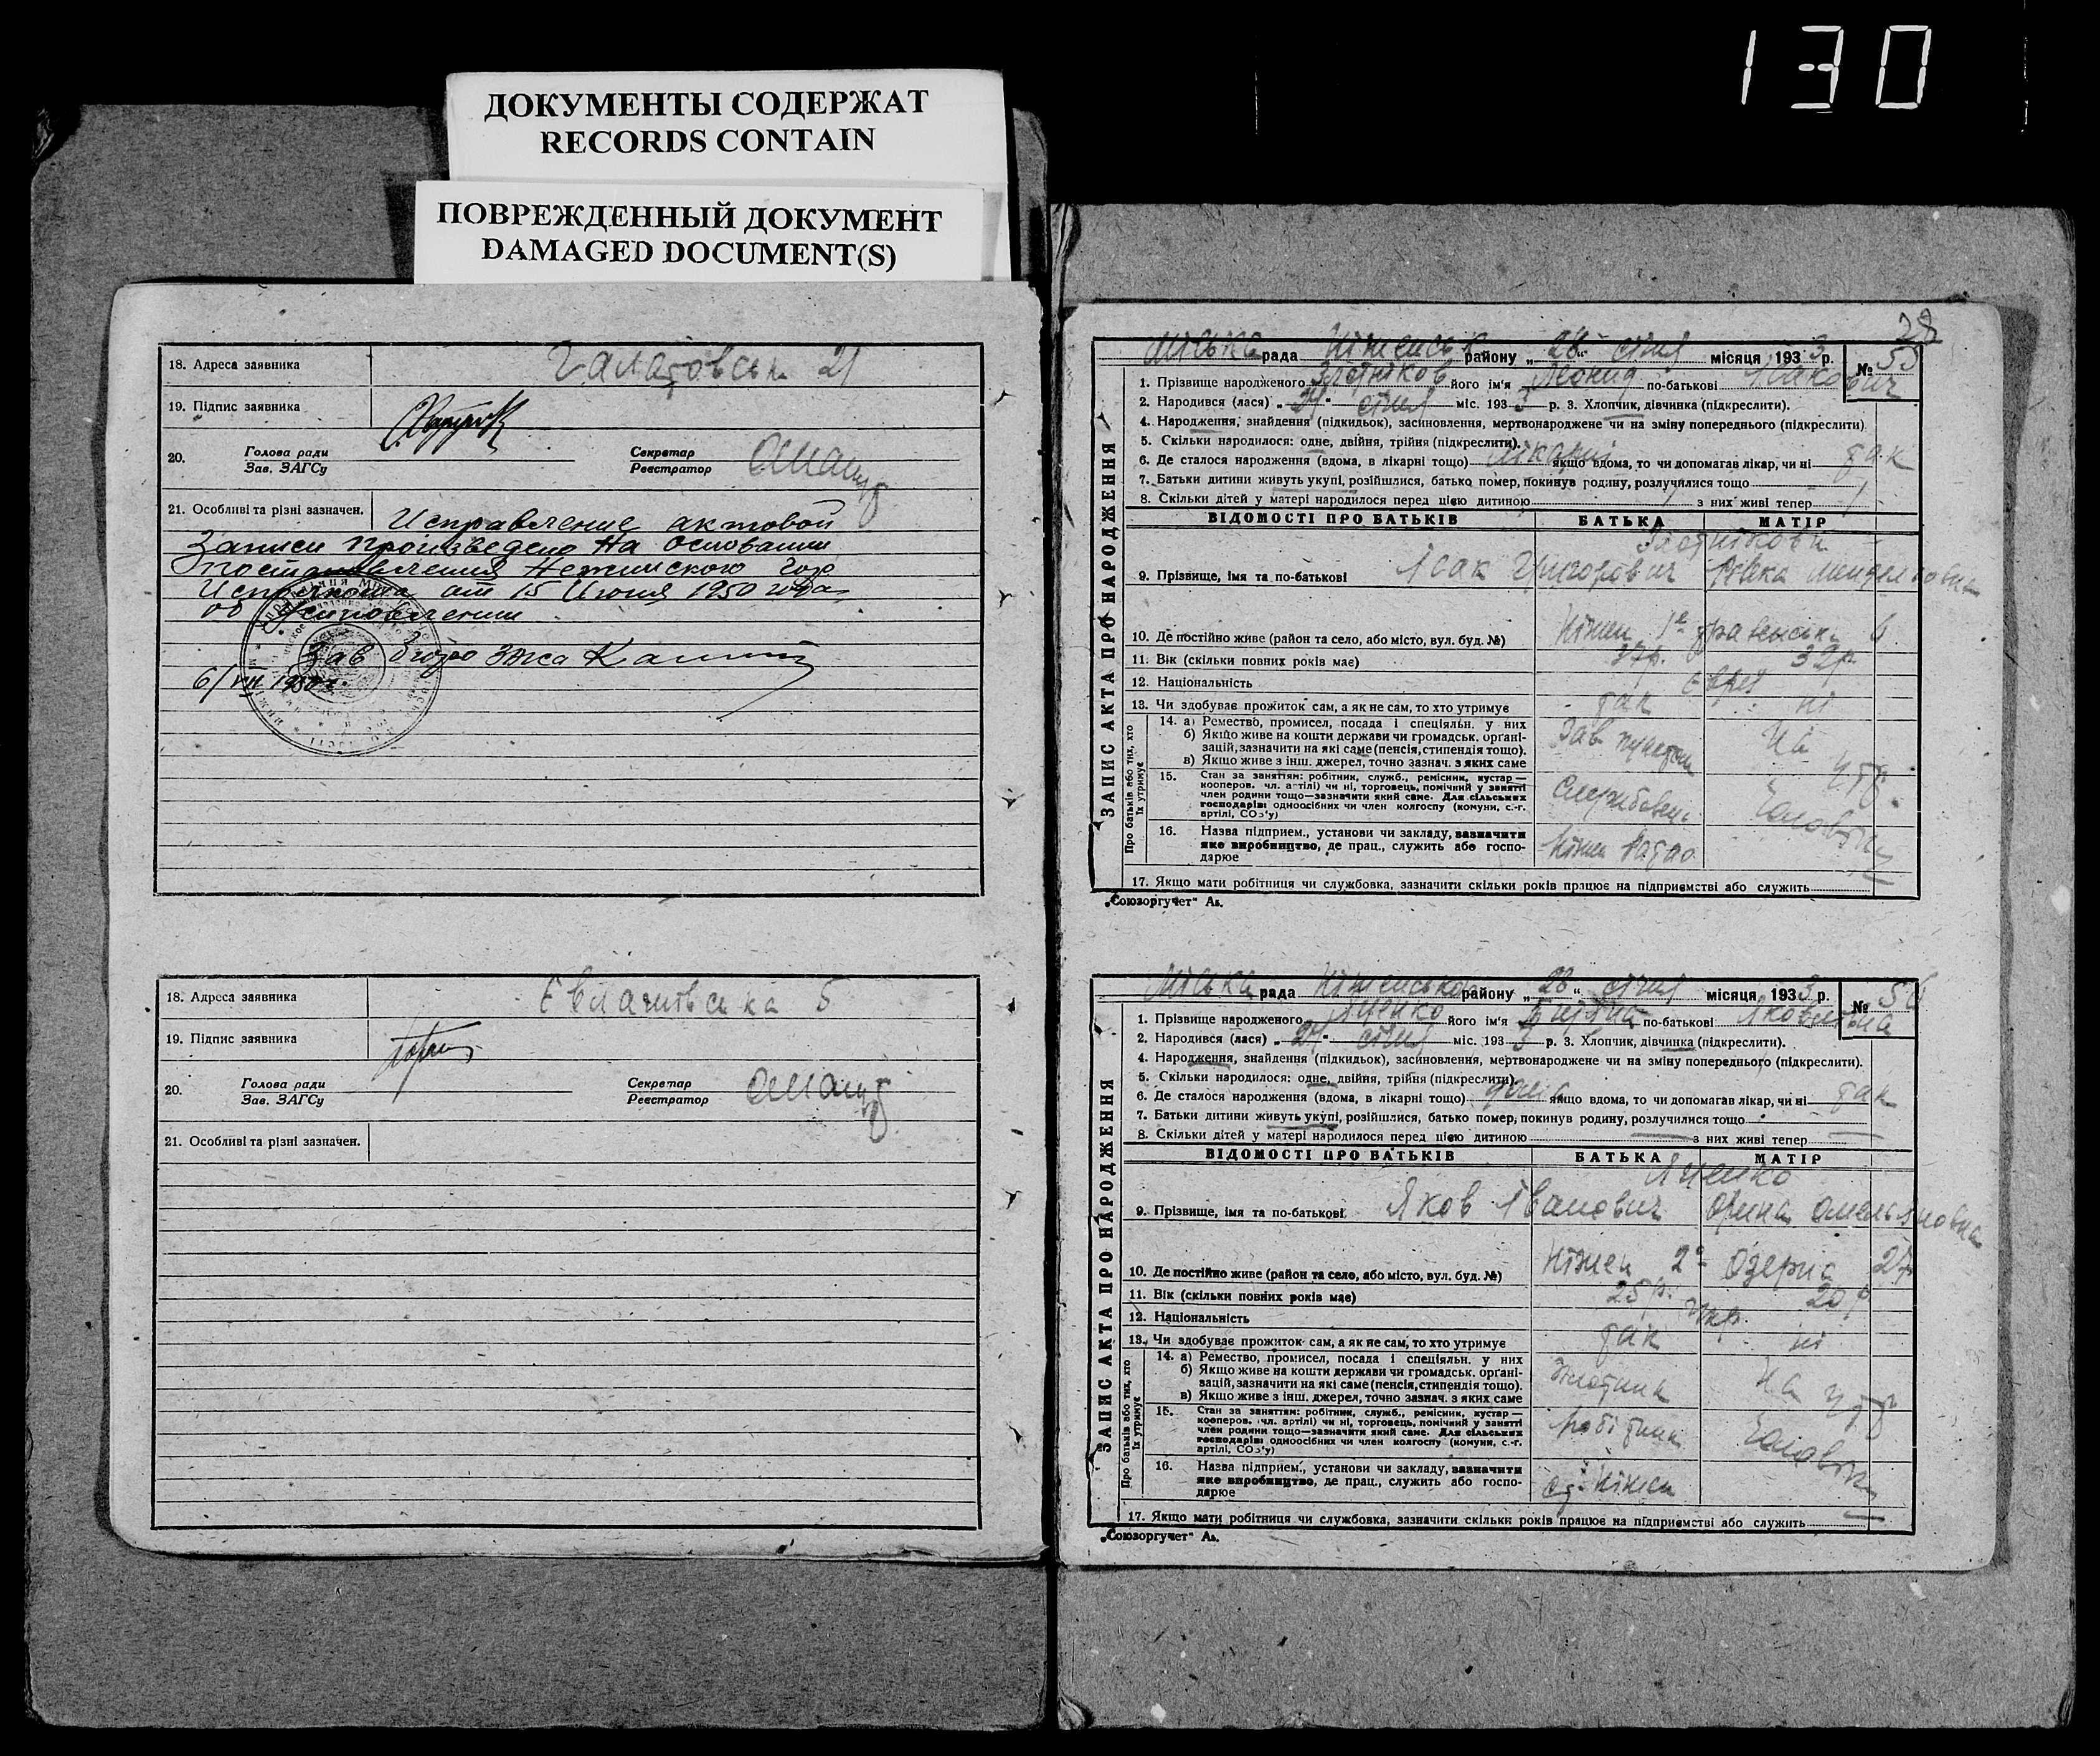 130
ДОКУМЕНТЫ СОДЕРЖАТ
RECORDS CONTAIN
ПОВРЕЖДЕННЫЙ ДОКУМЕНТ
DAMAGED DOCUMENT(S)
18. Адреса заявника
21
19. Підпис заявника
20. Голова ради Секретар
Зав. ЗАГСу Реєстратор
21. Особливі та різні зазначен. Исправление актовой
записи произведено на основании
постановления Нежинского гор
Исполкома от 15 Июня 1950 года
об
Зав бюро Загса
6/VII 1950 г.
18. Адреса заявника
5
19. Підпис заявника
20. Голова ради Секретар
Зав. ЗАГСу Реєстратор
21. Особливі та різні зазначен.
28
Міська рада Ніженськ району „28“ січня місяця 1933 р. № 55
ЗАПИС АКТА ПРО НАРОДЖЕННЯ
1. Прізвище народженого Злотніков його ім'я Леонид по-батькові Ісакович
2. Народився (лася) „ “ січня міс. 1933 р. 3. Хлопчик, дівчинка (підкреслити).
4. Народження, знайдення (підкидьок), засиновлення, мертвонароджене чи на зміну попереднього (підкреслити)
5. Скільки народилося: одне, двійня, трійня (підкреслити).
6. Де сталося народження (вдома, в лікарні тощо) лікарні якщо вдома, то чи допомагав лікар, чи ні так
7. Батьки дитини живуть укупі, розійшлися, батько помер, покинув родину, розлучилися тощо
8. Скільки дітей у матері народилося перед цією дитиною 1 з них живі тепер 1
ВІДОМОСТІ ПРО БАТЬКІВ БАТЬКА МАТІР
Злотнікови
9. Прізвище, імя та по-батькові Ісак Григорович Ревека Менделєовна
10. Де постійно живе (район та село, або місто, вул. буд. №) Ніжен 6
11. Вік (скільки повних років має) 37р. 32р.
12. Національність євреї
13. Чи здобуває прожиток сам, а як не сам, то хто утримує так ні
Про батьків або тих, хто їх утримує
14. а) Ремество, промисел, посада і спеціяльн. у них Зав На
б) Якщо живе на кошти держави чи громадськ. організацій, зазначити на які саме (пенсія, стипендія тощо).
в) Якщо живе з інш. джерел, точно зазнач. з яких саме
15. Стан за заняттям: робітник, служб., ремісник, кустар— Службовець
кооперов. чл. артілі) чи ні, торговець, помічний у занятті
член родини тощо—зазначити який саме. Для сільських
господарів: одноосібних чи член колгоспу (комуни, с.-г.
артілі, СОЗ'у)
16. Назва підприєм., установи чи закладу, зазначити Ніжен
яке виробництво, де прац., служить або госпо-
дарює
17. Якщо мати робітниця чи службовка, зазначити скільки років працює на підприємстві або служить
„Союзоргучет“
Міська рада Ніженськ району „28“ січня місяця 1933 р. № 56
ЗАПИС АКТА ПРО НАРОДЖЕННЯ
1. Прізвище народженого Яценко його ім'я по-батькові Яковлівна
2. Народився (лася) „ “ січня міс. 1933 р. 3. Хлопчик, дівчинка (підкреслити).
4. Народження, знайдення (підкидьок), засиновлення, мертвонароджене чи на зміну попереднього (підкреслити).
5. Скільки народилося: одне, двійня, трійня (підкреслити).
6. Де сталося народження (вдома, в лікарні тощо) дома якщо вдома, то чи допомагав лікар, чи ні так
7. Батьки дитини живуть укупі, розійшлися, батько помер, покинув родину, розлучилися тощо
8. Скільки дітей у матері народилося перед цією дитиною — з них живі тепер —
ВІДОМОСТІ ПРО БАТЬКІВ БАТЬКА МАТІР
Яценко
9. Прізвище, імя та по-батькові Яков Іванович Орина Омельяновна
10. Де постійно живе (район та село, або місто, вул. буд. №) Ніжен 2а Озерна 27
11. Вік (скільки повних років має) 25р. 20р
12. Національність Укр.
13. Чи здобуває прожиток сам, а як не сам, то хто утримує так ні
Про батьків або тих, хто їх утримує
14. а) Ремество, промисел, посада і спеціяльн. у них На
б) Якщо живе на кошти держави чи громадськ. організацій, зазначити на які саме (пенсія, стипендія тощо).
в) Якщо живе з інш. джерел, точно зазнач. з яких саме
15. Стан за заняттям: робітник, служб., ремісник, кустар— робітник
кооперов. чл. артілі) чи ні, торговець, помічний у занятті
член родини тощо—зазначити який саме. Для сільських
господарів: одноосібних чи член колгоспу (комуни, с.-г.
артілі, СОЗ'у)
16. Назва підприєм., установи чи закладу, зазначити ст. Ніжен
яке виробництво, де прац., служить або госпо-
дарює
17. Якщо мати робітниця чи службовка, зазначити скільки років працює на підприємстві або служить
„Союзоргучет“